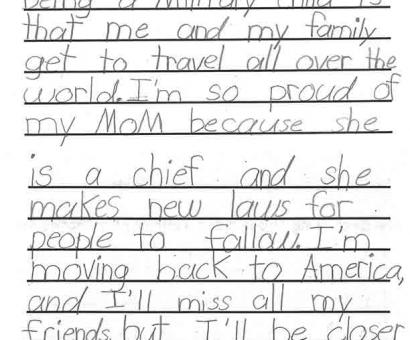 being a Military child is
that me and my family
get to travel all over the
world. I'm so proud of
my MoM because she
is a chief and she
makes new laws for
people to fallow. I'm
moving back to America,
and I'll miss all my
friends, but I'll be closer